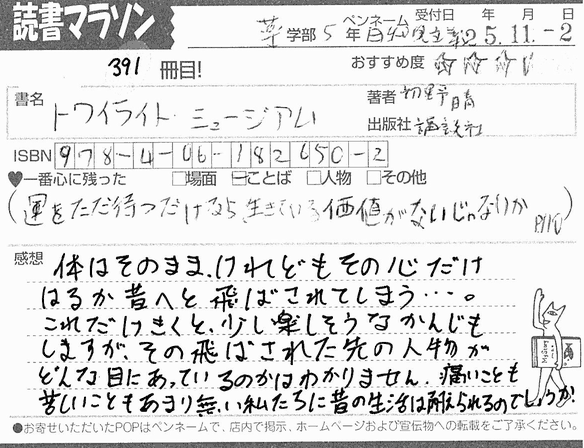 読書マラソン
薬学部 5年 ペンネーム 受付日 年 月 日
25.11.-2
391 冊目!
おすすめ度 ☆☆☆
書名 トワイライト・ミュージアム
著者 初野晴
出版社 講談社
ISBN 978-4-06-182650-2
♥一番心に残った □場面 □ことば □人物 □その他
(運をただ待つだけなら生きている価値がないじゃないか P110)
感想
体はそのまま、けれどもその心だけ
はるか昔へと飛ばされてしまう…。
これだけきくと、少し楽しそうなかんじも
しますが、その飛ばされた先の人物が
どんな目にあっているのかはわかりません。痛いことも
苦しいこともあまり無い私たちに昔の生活は耐えられるのでしょうか?
●お寄せいただいたPOPはペンネームで、店内で掲示、ホームページおよび宣伝物への転載をご了承ください。